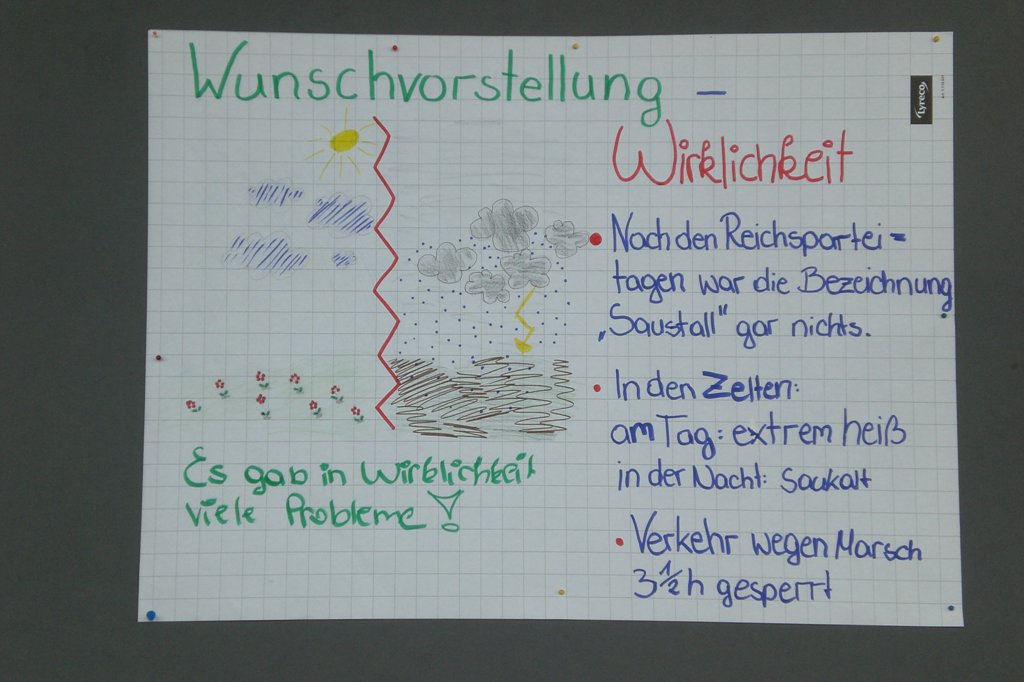 Wunschvorstellung –
Wirklichkeit
Lyreco
• Nach den Reichspartei=
tagen war die Bezeichnung
„Saustall" gar nichts.
• In den Zelten:
am Tag: extrem heiß
in der Nacht: Saukalt
• Verkehr wegen Marsch
3 1/2 h gesperrt
Es gab in Wirklichkeit
viele Probleme!